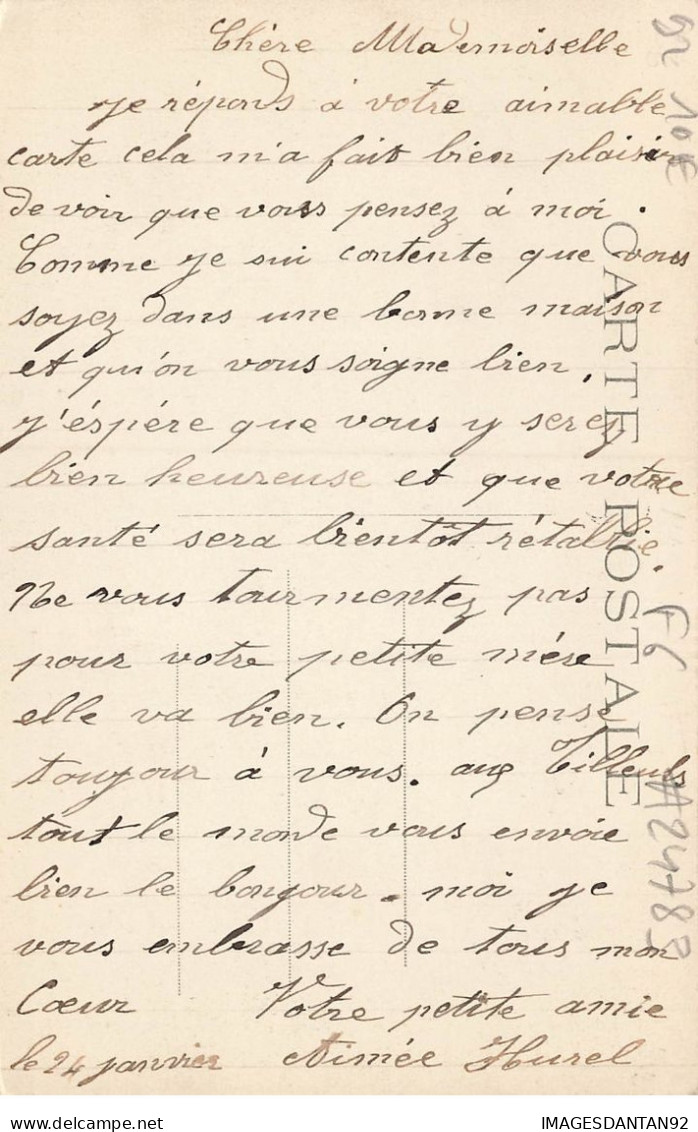 Chère Mademoiselle
je réponds à votre aimable
carte cela m'a fait bien plaisir
de voir que vous pensez à moi.
Comme je sui contente que vous
soyez dans une bonne maison
et qu'on vous soigne bien,
j'éspére que vous y serez
bien heureuse et que votre
santé sera bientôt rétablie.
Ne vous tourmentez pas
pour votre petite mére
elle va bien. On pense
toujour à vous. aux Tilleuls
tout le monde vous envoie
bien le bonjour. moi je
vous embrasse de tous mon
Cœur Votre petite amie
le 24 janvier Aimée Hurel
CARTE POSTALE
10€
F6
A24783
IMAGESDANTAN92